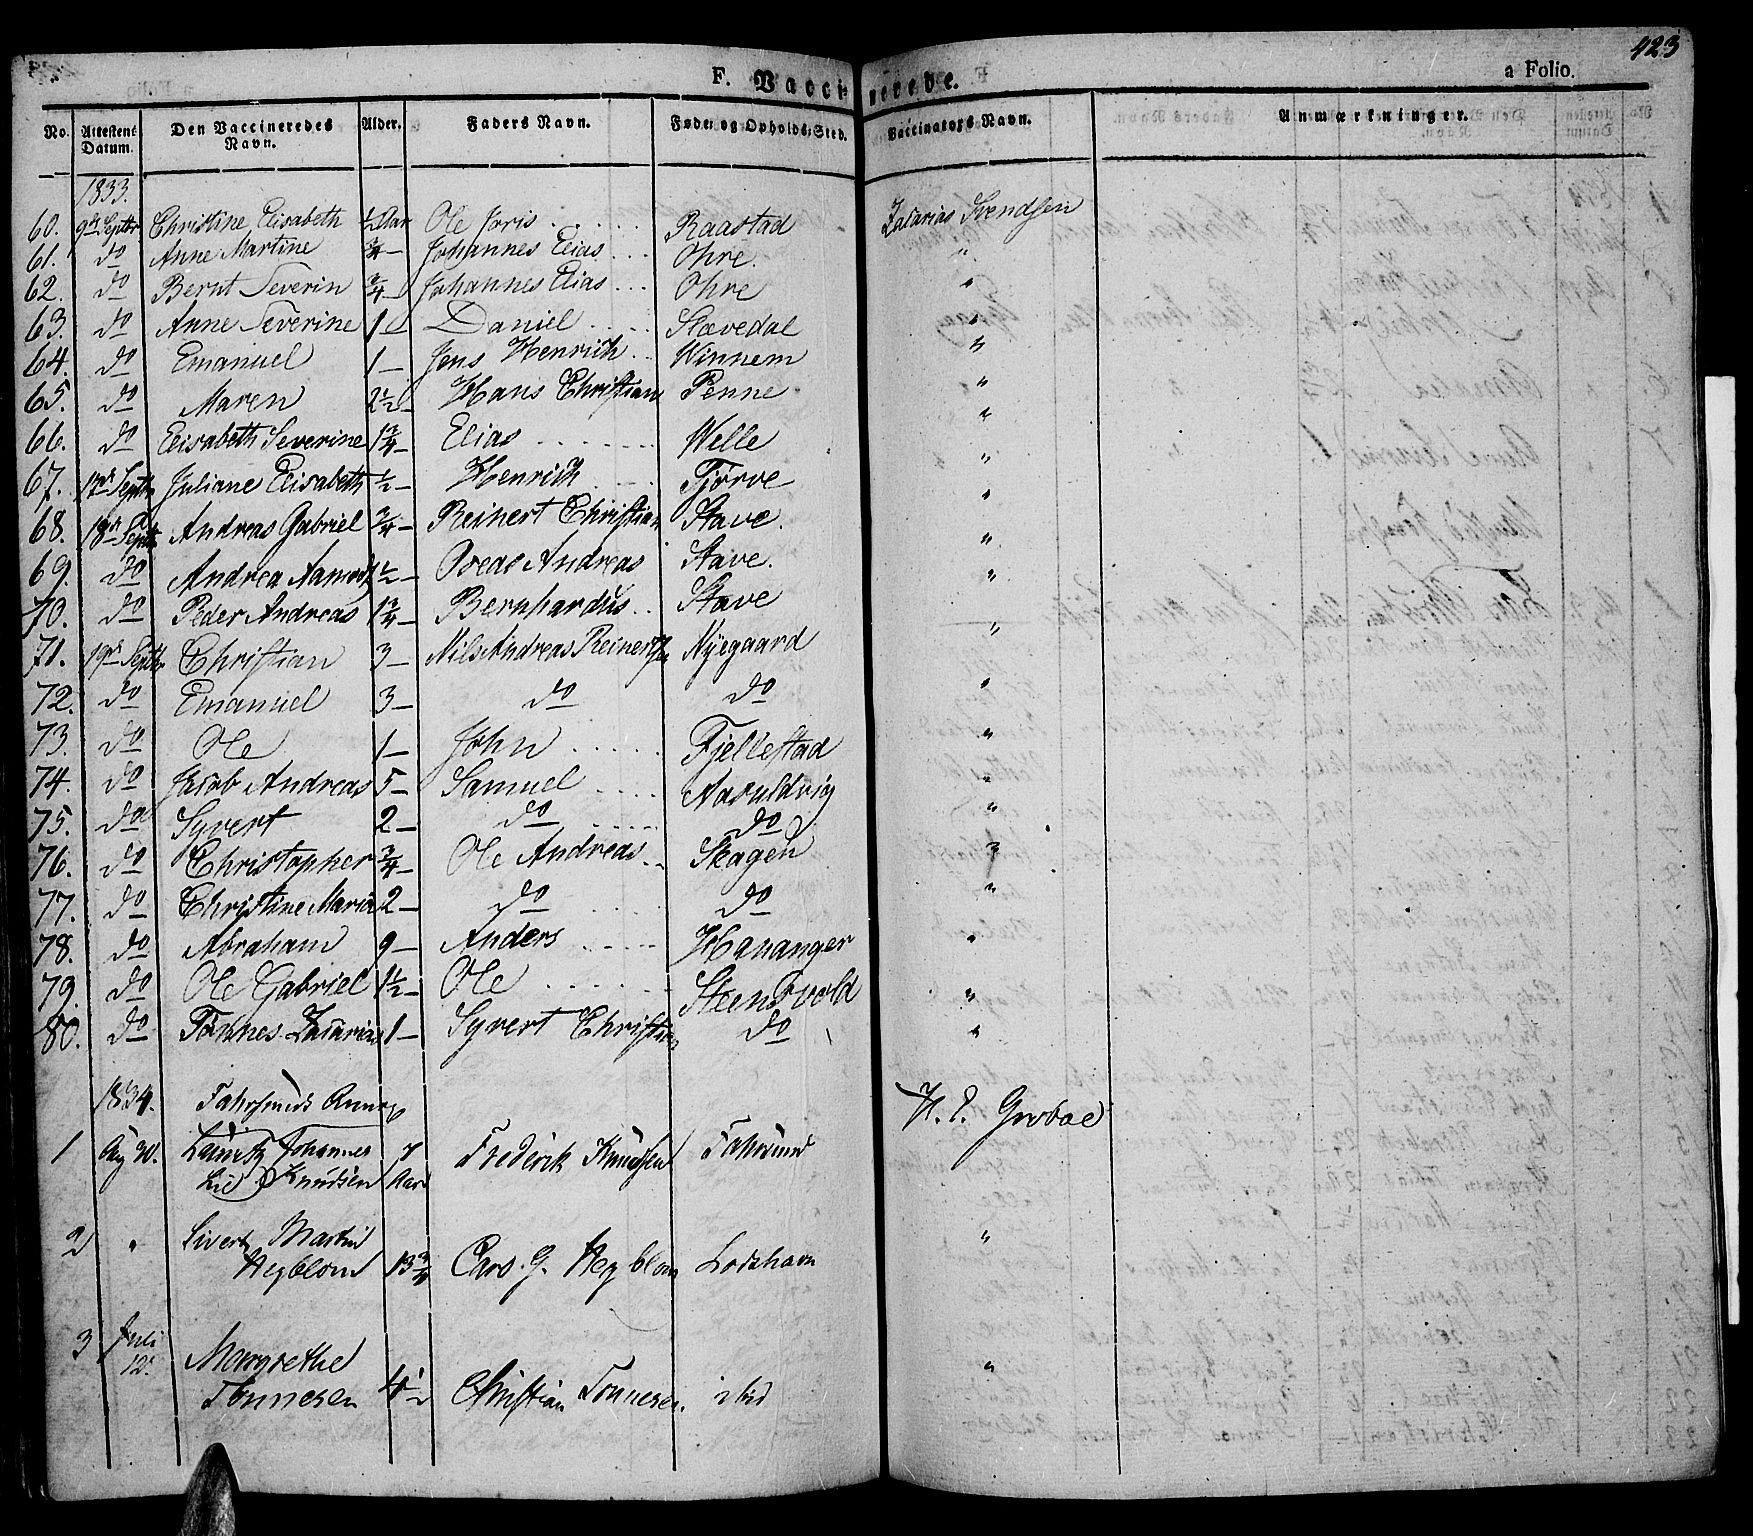 423
F. Vaccinerede.
a Folio.
No. Attestens Datum. Den Vaccineredes Navn. Alder. Faders Navn. Føde- og Opholds-Sted. Vaccinators Navn. Anmærkninger.
1833.
60. 9de Septbr. Christine Elisabeth ½ Aar Ole Joris Raastad Zacarias Svendsen
61. do Anne Martine ¾ Johannes Elias Ohre. "
62. do Bernt Severin ¾ Johannes Elias Ohre "
63. do Anne Severine 1 Daniel Stavedal "
64. do Emanuel 1 Jens Henrich Winnem "
65. do Maren 2½ Hans Christian Penne "
66. do Elisabeth Severine 1¾ Elias Welle "
67. 17de Septbr Juliane Elisabeth ½ Henrich Tjørve "
68. 18de Septbr Andreas Gabriel ¾ Reinert Christian Stave. "
69. do Andrea ½ Oveas Andreas Stave. "
70. do Peder Andreas 1¾ Bernhardus Stave "
71. 19de Septbr Christian 3 Nils Andreas Reinertsen Nyegaard "
72. do Emanuel 3 do do "
73. do Ole 1 John Fjellestad "
74. do Jacob Andreas 5 Samuel Aasuldvig "
75. do Syvert 2 do do "
76. do Christopher ¾ Ole Andreas Skagen "
77. do Christine Maria 2 do do "
78. do Abraham 9 Anders Hananger "
79. do Ole Gabriel 1½ Ole Steensvold "
80. do Tønnes Zacarias 1 Syvert Christian do "
1834. Fahrsunds Annex
1 Aug 30. Lauritz Johannes 7 Frederik Knudsen Fahrsund
Lie Knudsen Aar
2 " Sivert Martin
Hegblom 13¾ Cars. G. Hegblom Loshavn "
3 Juli 12. Margrethe "
Tønnesen 4½ Christian Tonnesen ibid